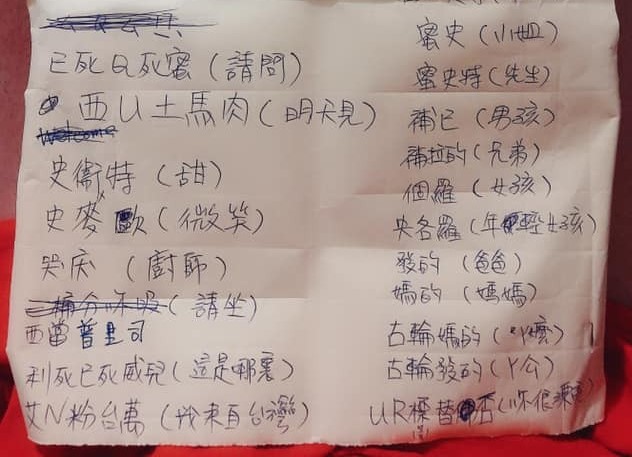 已死Q死蜜（請問）
西U土馬肉（明天見）
史衛特（甜）
史麥歐（微笑）
（廚師）
（請坐）
西當普里司
利死已死威兒（這是哪裏）
艾N粉台萬（我來自台灣）
蜜史（小姐）
蜜史特（先生）
補已（男孩）
補拉的（兄弟）
個羅（女孩）
央各羅（年輕女孩）
發的（爸爸）
媽的（媽媽）
古輪媽的（ㄚ嬤）
古輪發的（ㄚ公）
UR標替否（你很漂亮）